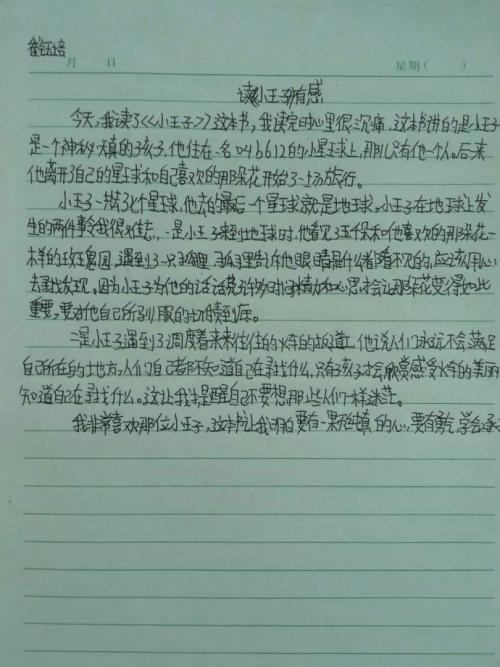 月 日 星期( )
读《小王子》有感
今天,我读了《<小王子>》这本书,我读完时心里很沉痛,这本书讲的是小王子
是一个神秘天真的孩子,他住在名046612的小星球上,那儿只有他一个人。后来
他离开了自己的星球和自己喜欢的那朵花开始了一场旅行。
小王子一共了七个星球,他去的最后一个星球就是地球。小王子在地球上发
生的两件事令我很难忘,一是小王子来到地球时,他看见了五千保和他喜欢的那朵花一
样的玫瑰园,遇到了一只狐狸,狐狸告诉他眼睛是什么都看不见的,应该用心
去寻找发现。因为小王子为他的花费许多时间精力和心思才会让那朵花变得如此
重要,要对他自己所驯服的一切负责到底。
二是小王子遇到了调度着来来往往的火车的扳道工。他说人们永远不会满足
自己所在的地方,人们自己都不知道自己在寻找什么,只有孩子才会欣赏感受火车的美丽
知道自己在寻找什么。这让我提醒自己不要想那些人们一样迷茫。
我非常喜欢那位小王子,这本书让我明白要有一颗纯真的心,要有勇气学会承